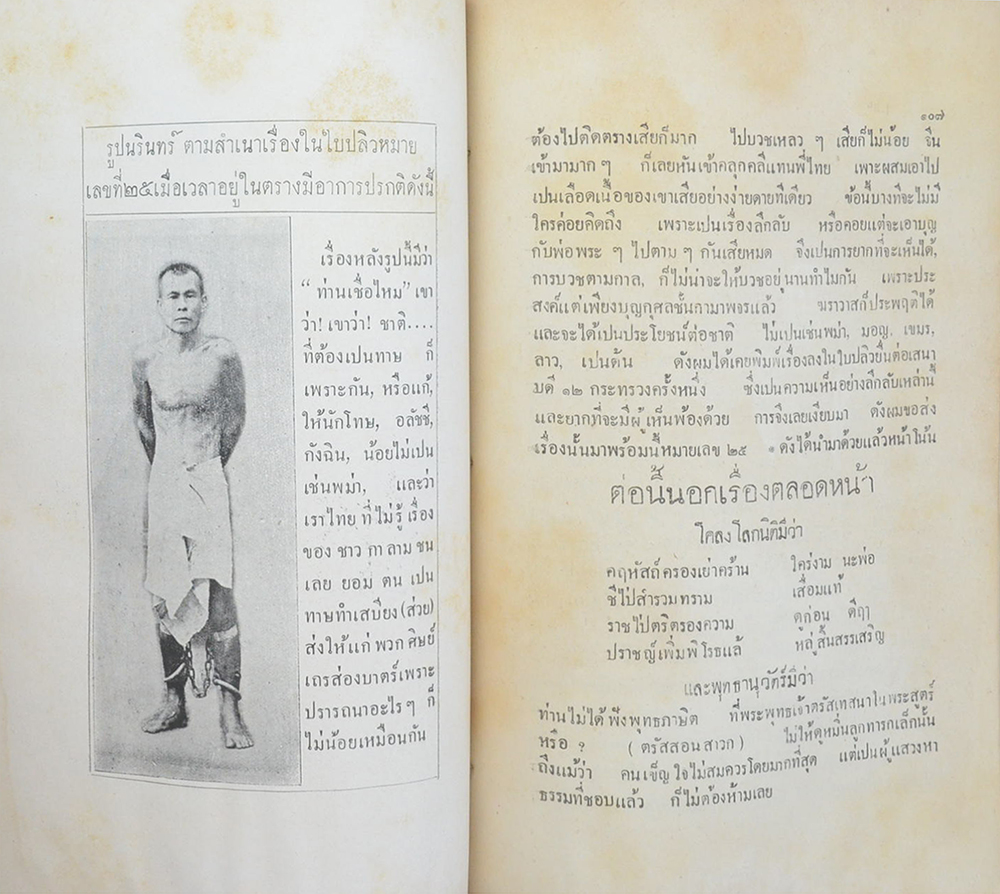 รูปนรินทร์ ตามสำเนาเรื่องในใบปลิวหมาย
เลขที่๒๕เมื่อเวลาอยู่ในตรางมีอาการปรกติดังนี้
เรื่องหลังรูปนี้มีว่า
“ ท่านเชื่อไหม” เขา
ว่า! เขาว่า! ชาติ....
ที่ต้องเปนทาษ ก็
เพราะกัน, หรือแก้,
ให้นักโทษ, อลัชชี,
กังฉิน, น้อยไม่เปน
เช่นพม่า, และว่า
เราไทย ที่ ไม่รู้ เรื่อง
ของ ชาว กา ลาม ชน
เลย ยอม ตน เปน
ทาษทำเสบียง (ส่วย)
ส่งให้ แก่ พวก ศิษย์
เถรส่องบาตร์เพราะ
ปรารถนาอะไร ๆ ก็
ไม่น้อยเหมือนกัน
๑๐๗
ต้องไปติดตรางเสียก็มาก ไปบวชเหลว ๆ เสียก็ไม่น้อย จีน
เข้ามามาก ๆ ก็เลยหันเข้าคลุกคลีแทนพี่ไทย เพาะผสมเอาไป
เปนเลือดเนื้อของเขาเสียอย่างง่ายดายทีเดียว ข้อนี้บางทีจะไม่มี
ใครค่อยคิดถึง เพราะเปนเรื่องลึกลับ หรือคอยแต่จะเอาบุญ
กับพ่อพระ ๆ ไปตาม ๆ กันเสียหมด จึงเปนการยากที่จะเห็นได้,
การบวชตามกาล, ก็ไม่น่าจะให้บวชอยู่นานทำไมกัน เพราะประ
สงค์แต่เพียงบุญกุศลชั้นกามาพจรแล้ว ฆราวาสก็ประพฤติได้
และจะได้เปนประโยชน์ต่อชาติ ไม่เปนเช่นพม่า, มอญ, เขมร,
ลาว, เปนต้น ดังผมได้เคยพิมพ์เรื่องลงในใบปลิวยื่นต่อเสนา
บดี ๑๒ กระทรวงครั้งหนึ่ง ซึ่งเปนความเห็นอย่างลึกลับเหล่านี้
และยากที่จะมีผู้เห็นพ้องด้วย การจึงเลยเงียบมา ดังผมขอส่ง
เรื่องนั้นมาพร้อมนี้หมายเลข ๒๕ ดังได้นำมาด้วยแล้วหน้าโน้น
ต่อนี้นอกเรื่องตลอดหน้า
โคลง โลกนิติมีว่า
คฤหัสถ์ครองเย่าคร้าน ใคร่งาม นะพ่อ
ชีไป่สำรวมทราม เสื่อมแท้
ราชไป่ตริตรองความ ดูก่อน ดีฤๅ
ปราชญ์เพิ่มพิโรธแล้ หลู่สิ้นสรรเสริญ
และพุทธานุวัตร์มีว่า
ท่านไม่ได้ ฟังพุทธภาษิต ที่พระพุทธเจ้าตรัสเทสนาในพระสูตร์
หรือ ? ( ตรัสสอนสาวก ) ไม่ให้ดูหมิ่นลูกทารกเล็กนั้น
ถึงแม้ว่า คนเข็ญใจไม่สมควรโดยมากที่สุด แต่เปนผู้แสวงหา
ธรรมที่ชอบแล้ว ก็ไม่ต้องห้ามเลย